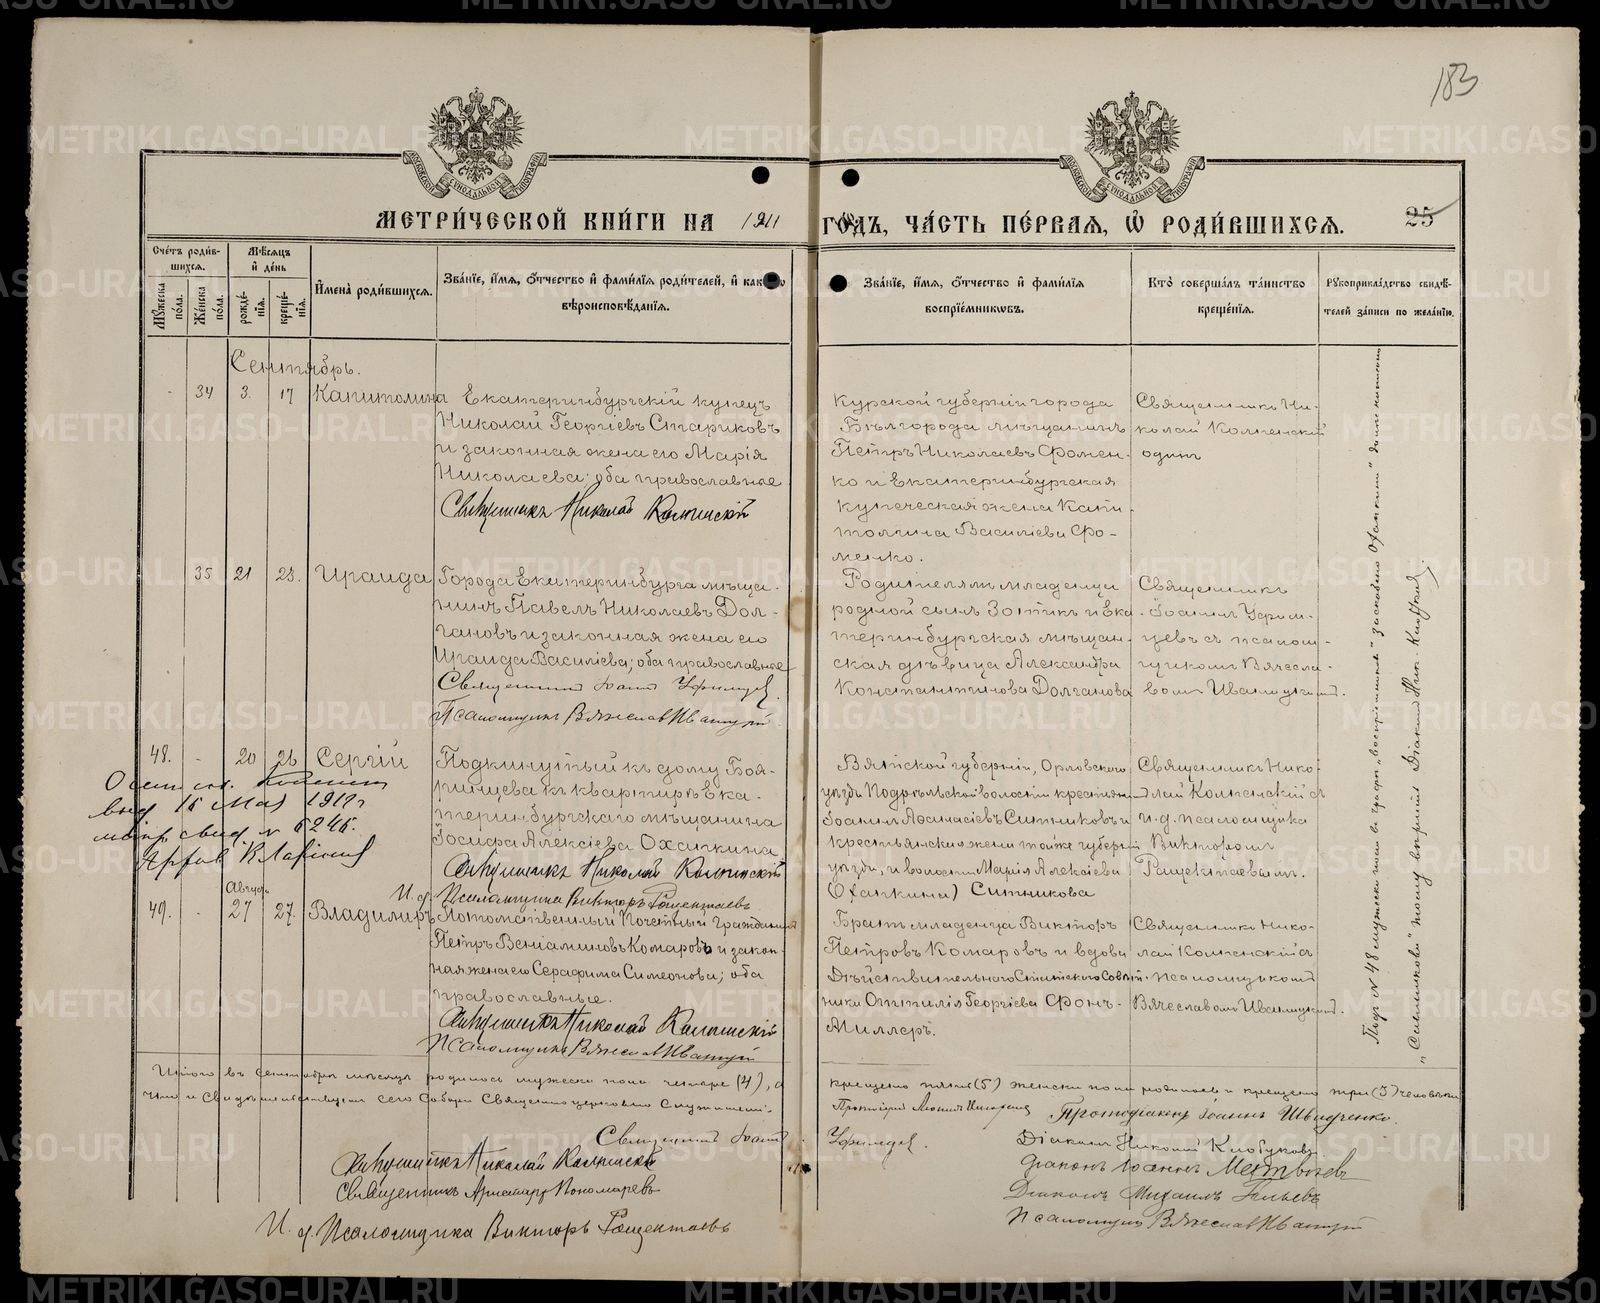 183
МЕТРИ́ЧЕСКОЙ КНИ́ГИ НА 1911 ГО́ДЪ, ЧА́СТЬ ПЕ́РВАЯ, Ѡ҆ РОДИ́ВШИХСЯ.
25
Сче́тъ роди́вшихся.
Мѹ́жеска по́ла.
Же́нска по́ла.
Мѣ́сяцъ и҆ де́нь
рожде́нїя.
креще́нїя.
И҆мена̀ роди́вшихся.
Зва́нїе, и҆́мя, ѻ҆́тчество и҆ фами́лїя роди́телей, и҆ како́го
вѣроисповѣ́данїя.
Зва́нїе, и҆́мя, ѻ҆́тчество и҆ фами́лїя
воспрїе́мниковъ.
Кто̀ соверша́лъ та́инство
креще́нїя.
Рѹкоприкла́дство свидѣ́-
телей за́писи по жела́нїю.
Сентябрь.
- 34 3. 17 Капитолина
Екатеринбургскій купецъ
Николай Георгіевъ Стариковъ
и законная жена его Марія
Николаева; оба православные
Священникъ Николай Колтенскій
Курской губерніи города
Бѣлгорода мѣщанинъ
Петръ Николаевъ Фомен-
ко и Екатеринбургская
купеческая жена Капи-
толина Васильева Фо-
менко.
Священникъ Ни-
колай Колтенскій
одинъ
35 21 23. Ираида
Города Екатеринбурга мѣща-
нинъ Павелъ Николаевъ Дол-
гановъ и законная жена его
Ираида Василіева; оба православные
Священникъ Іоаннъ Уфимцев.
Псаломщикъ Вячеслав Иваницкій.
Родителямъ младенца
родной сынъ Зотикъ и Ека-
теринбургская мѣщан-
ская дѣвица Александра
Константинова Долганова
Священникъ
Іоаннъ Уфим-
цевъ съ псалом-
щикомъ Вячесла-
вомъ Иваницкимъ.
48. - 20 26 Сергій
Подкинутый къ дому Боя-
ринцева къ квартирѣ Ека-
теринбургскаго мѣщанина
Іосифа Алексіева Охапкина
Священникъ Николай Колтенскій
И. д. Псаломщика Викторъ Ращектаевъ
Вятской губерніи, Орловскаго
уѣзда Подрѣльской волости крестьянинъ
Іоаннъ Афанасіевъ Ситниковъ и
крестьянская жена тойже губерніи
уѣзда, и волости Марія Алексіева
(Охапкина) Ситникова
Священникъ Нико-
лай Колтенскій съ
и. д. псаломщика
Викторомъ
Ращектаевымъ.
выд 16 Мая 1917г
свид № 6246.
Августъ
49. - 27 27. Владимиръ
Потомственный Почетный Гражданинъ
Петръ Веніаминовъ Комаровъ и закон-
ная жена его Серафима Симеонова; оба
православные.
Священникъ Николай Колтенскій
Псаломщикъ Вячеслав Иваницкій
Братъ младенца Викторъ
Петровъ Комаровъ и вдова
Дѣйствительнаго Статскаго Совѣт-
ника Оттилія Георгіева Фонъ-
Миллеръ.
Священникъ Нико-
лай Колтенскій съ
псаломщикомъ
Вячеславомъ Иваницкимъ.
Подъ № 48 мужескаго пола въ графѣ „воспріемники" за скобкою „Охапкина" дописанному
„Ситникова" тому вѣрить Діаконъ Ник. Клобуковъ.
Итого въ Сентябрѣ мѣсяцѣ родилось мужеска пола четыре (4), а крещено пять (5) женска пола родилось и крещено три (3) человѣка
чемъ и свидѣтельствуемъ сего Собора Священноцерковно Служители:
Священникъ Іоаннъ Уфимцев.
Протодіаконъ Іоаннъ Швидченко.
Священникъ Николай Колтенскій
Діаконъ Николай Клобуковъ
Священникъ Аристархъ Пономаревъ
Діаконъ Михаилъ
И. д. Псаломщика Викторъ Ращектаевъ
Псаломщикъ Вячеслав Иваницкій
METRIKI.GASO-URAL.RU